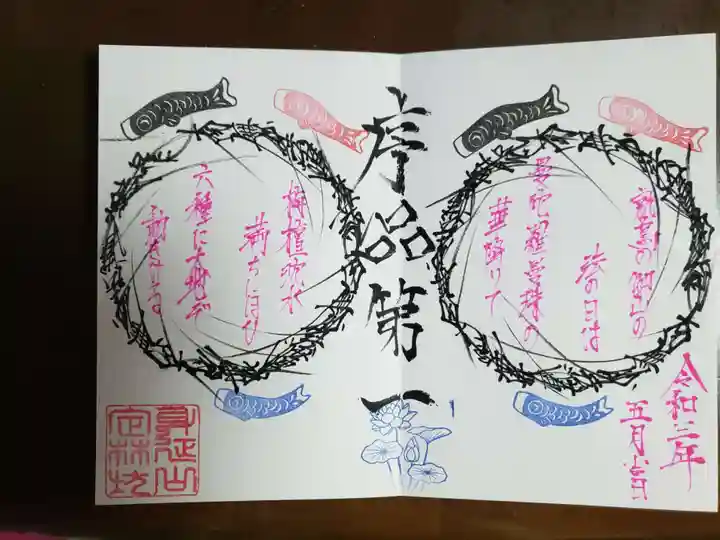 霊鷲の御山の
春の日は
曼陀羅曼殊の
華降りて
序品第一
栴檀香水
満ちにほひ
六種に大地ぞ
動きける
令和三年
五月吉日
身延山
定林坊